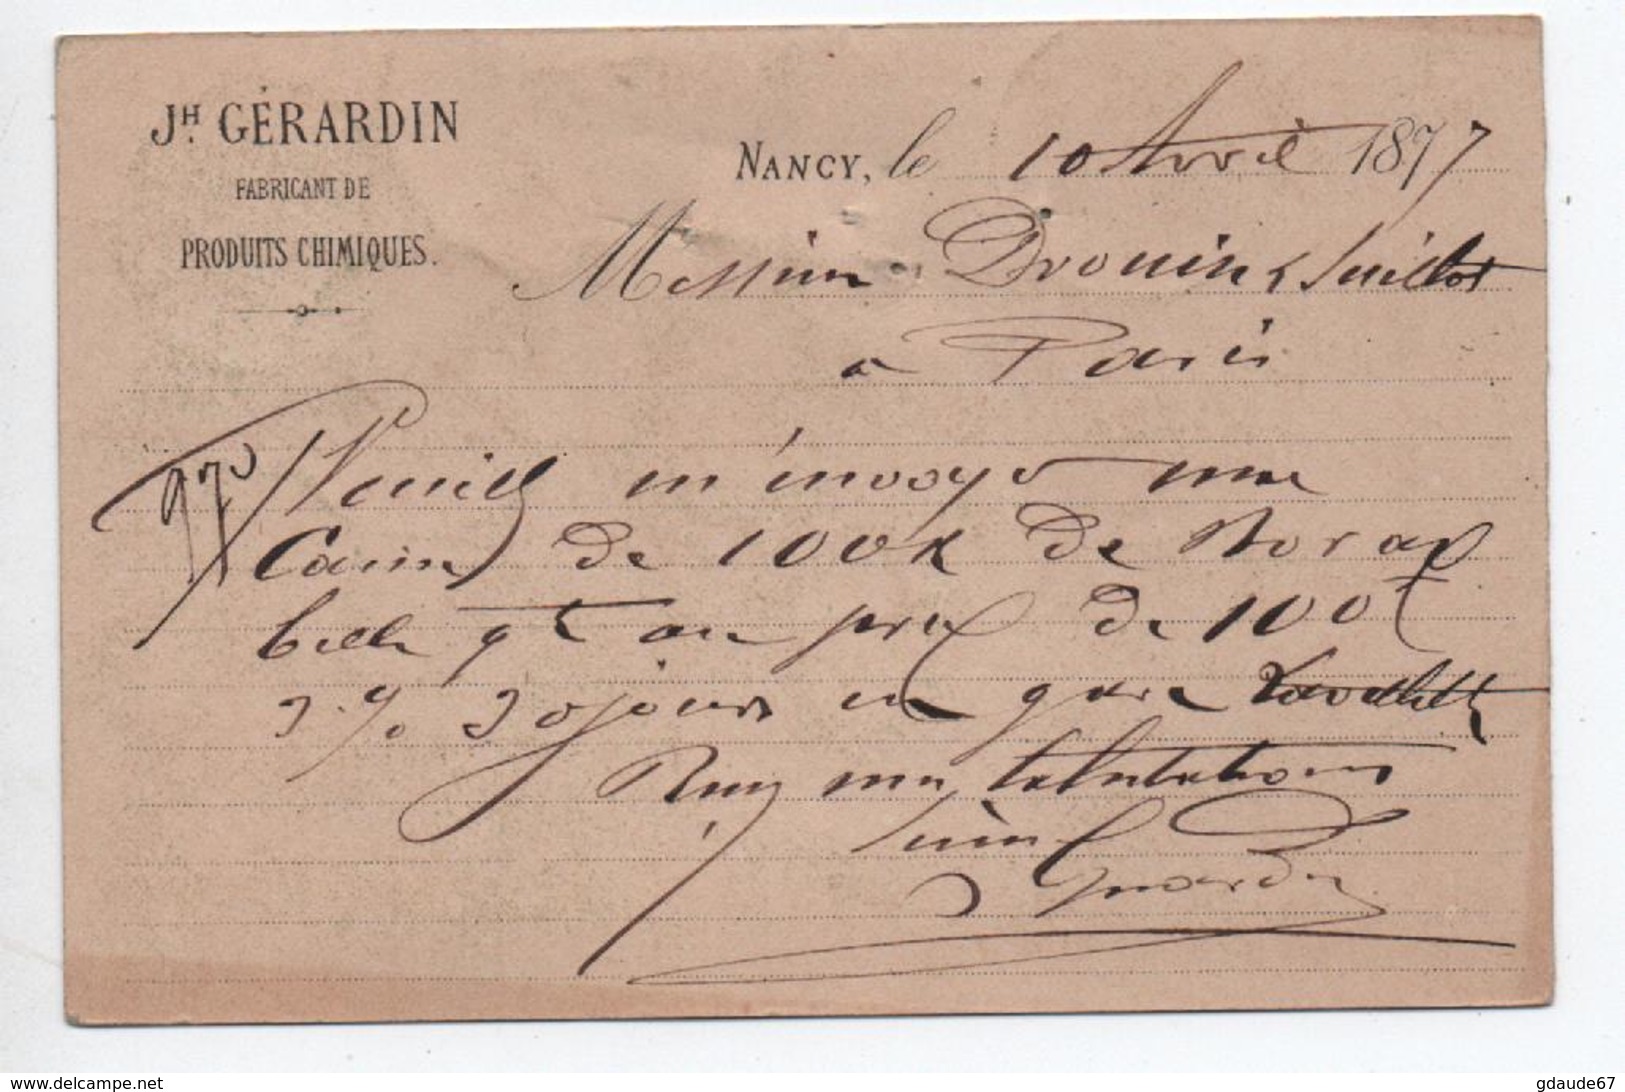 JH. GÉRARDIN
FABRICANT DE
PRODUITS CHIMIQUES.
NANCY, le 10 Avril 1877
Messieurs Drouin &
à Paris
970
Veuillez m'envoyer une
Caisse de 100k de Borax
belle qté au prix de 100f
3 % 30 jours en gare
mes salutations
Gérardin
www.delcampe.net
gdaude67